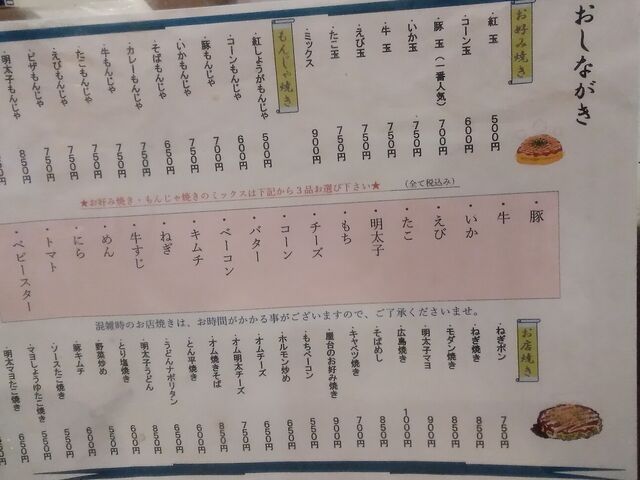 おしながき
お好み焼き
・紅玉 500円
・コーン玉 600円
・豚玉(一番人気) 700円
・いか玉 750円
・牛玉 750円
・えび玉 750円
・たこ玉 750円
・ミックス 900円
もんじゃ焼き
・紅しょうがもんじゃ 500円
・コーンもんじゃ 600円
・豚もんじゃ 700円
・いかもんじゃ 750円
・そばもんじゃ 650円
・カレーもんじゃ 750円
・牛もんじゃ 750円
・たこもんじゃ 750円
・えびもんじゃ 750円
・ピザもんじゃ 850円
・明太子もんじゃ
(全て税込み)
★お好み焼き・もんじゃ焼きのミックスは下記から3品お選び下さい★
・豚
・牛
・いか
・えび
・たこ
・明太子
・もち
・チーズ
・コーン
・バター
・ベーコン
・キムチ
・ねぎ
・牛すじ
・めん
・にら
・トマト
・ベビースター
混雑時のお店焼きは、お時間がかかる事がございますので、ご了承くださいませ。
お店焼き
・ねぎポン 750円
・ねぎ焼き 850円
・モダン焼き 850円
・明太子マヨ 900円
・広島焼き 1000円
・そばめし 850円
・キャベツ焼き 700円
・屋台のお好み焼き 900円
・もちベーコン 550円
・ホルモン炒め 650円
・オムチーズ 650円
・オム明太チーズ 750円
・オム焼きそば 850円
・とん平焼き 600円
・うどんナポリタン 650円
・明太子うどん 850円
・とり塩焼き 600円
・野菜炒め 550円
・豚キムチ 600円
・ソースたこ焼き 550円
・マヨしょうゆたこ焼き 550円
・明太マヨたこ焼き